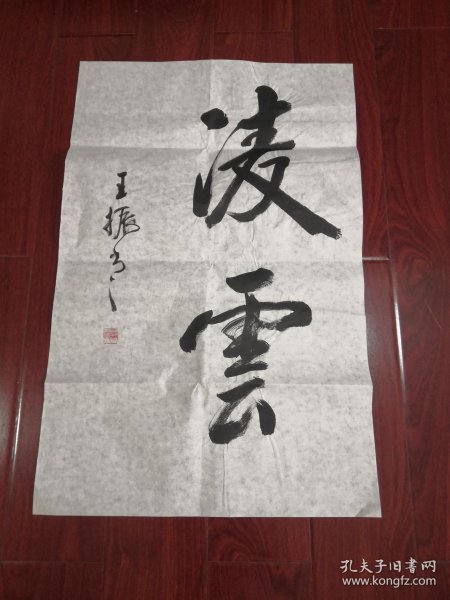 凌雲
王振书
孔夫子旧书网
www.kongfz.com